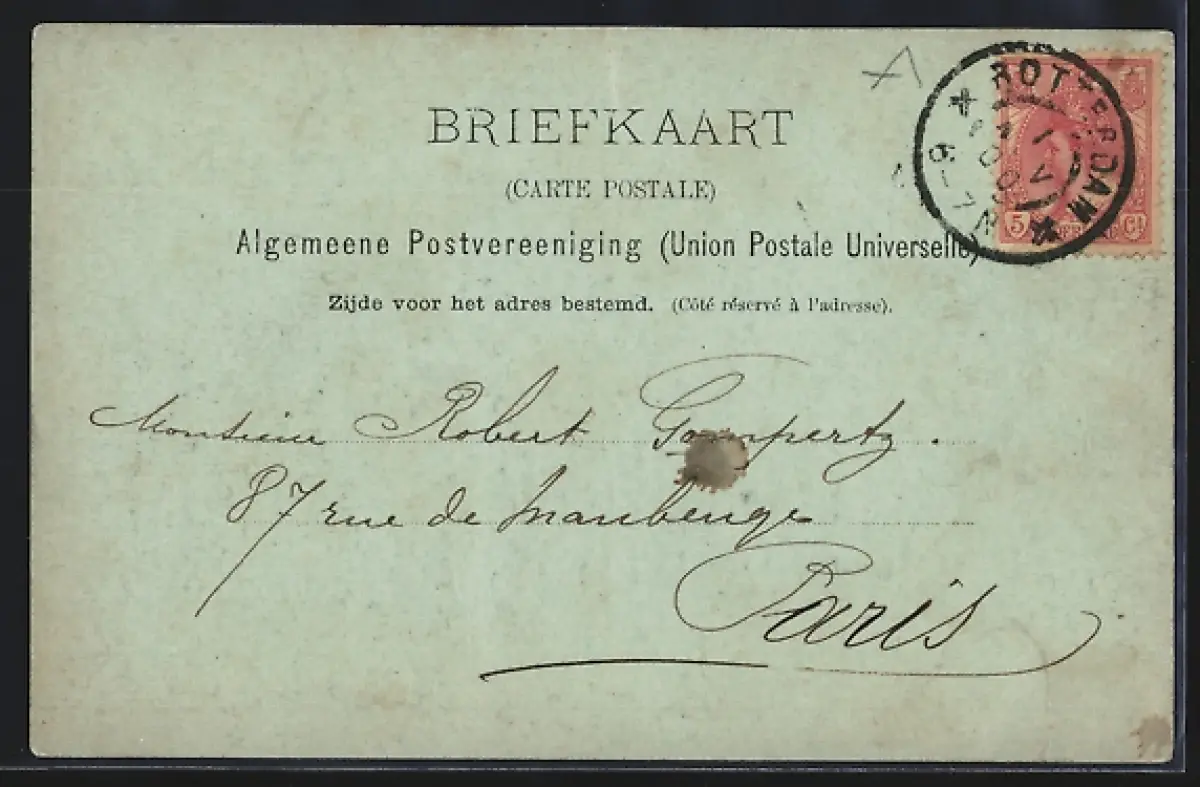 BRIEFKAART
(CARTE POSTALE)
Algemeene Postvereeniging (Union Postale Universelle)
Zijde voor het adres bestemd. (Côté réservé à l'adresse).
ROTTERDAM
6-7N
5 Ct
Monsieur Robert Gompertz.
87 rue de Maubeuge
Paris